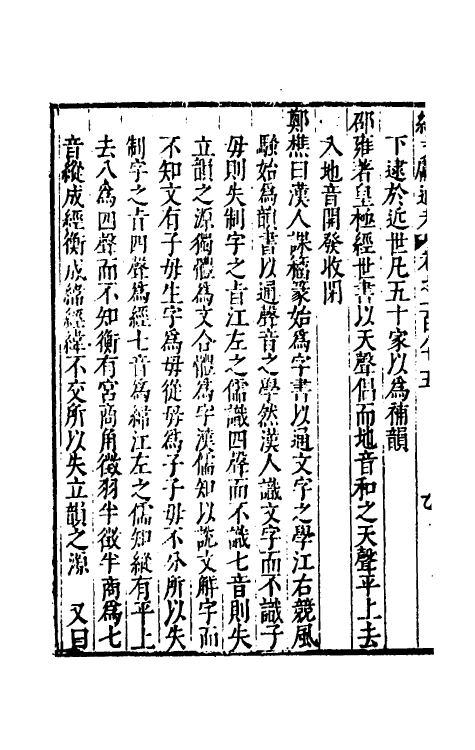 續文獻通考 卷之一百八十五
下逮於近世凡五十家以為補韻
邵雍著皇極經世書以天聲倡而地音和之天聲平上去
入地音開發收閉
鄭樵曰漢人課籀篆始為字書以通文字之學江右競風
騷始為韻書以通聲音之學然漢人識文字而不識子
母則失制字之旨江左之儒識四聲而不識七音則失
立韻之源獨體為文合體為字漢儒知以說文解字而
不知文有子母生字為母從母為子子母不分所以失
制字之旨四聲為經七音為緯江左之儒知縱有平上
去入為四聲而不知衡有宮商角徵羽半徵半商為七
音縱成經衡成緯經緯不交所以失立韻之源 又曰